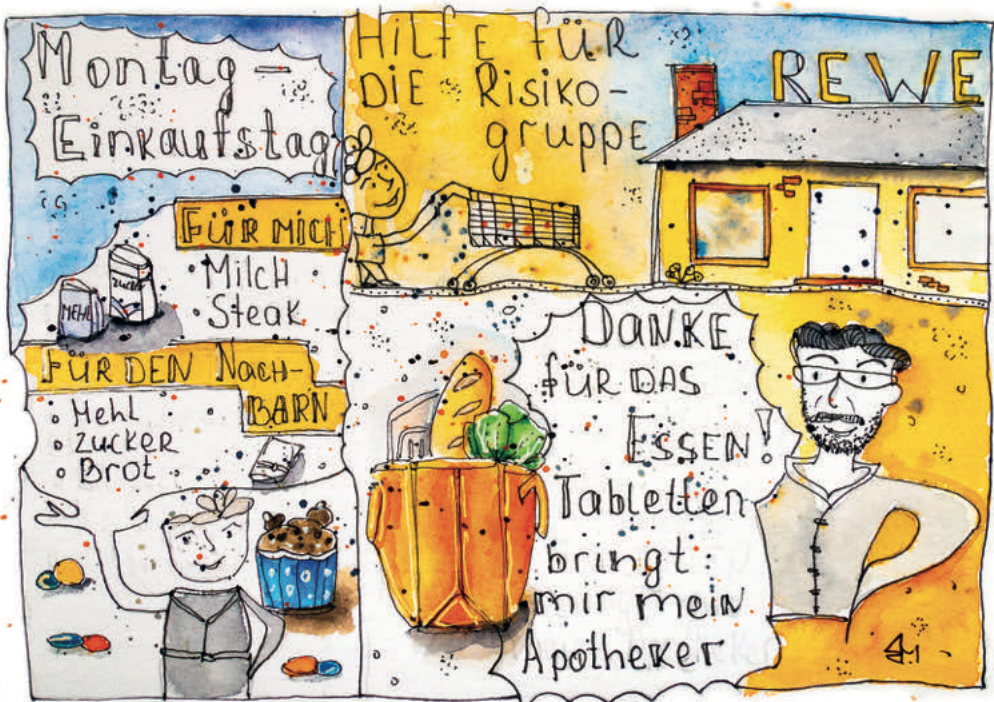 Montag –
Einkaufstag
FÜR MICH
• Milch
• Steak
ZUCKER
MEHL
FÜR DEN NACH-
BARN
• Mehl
• Zucker
• Brot
HILFE FÜR
DIE RISIKO-
gruppe
REWE
DANKE
FÜR DAS
ESSEN!
Tabletten
bringt
mir mein
Apotheker
M